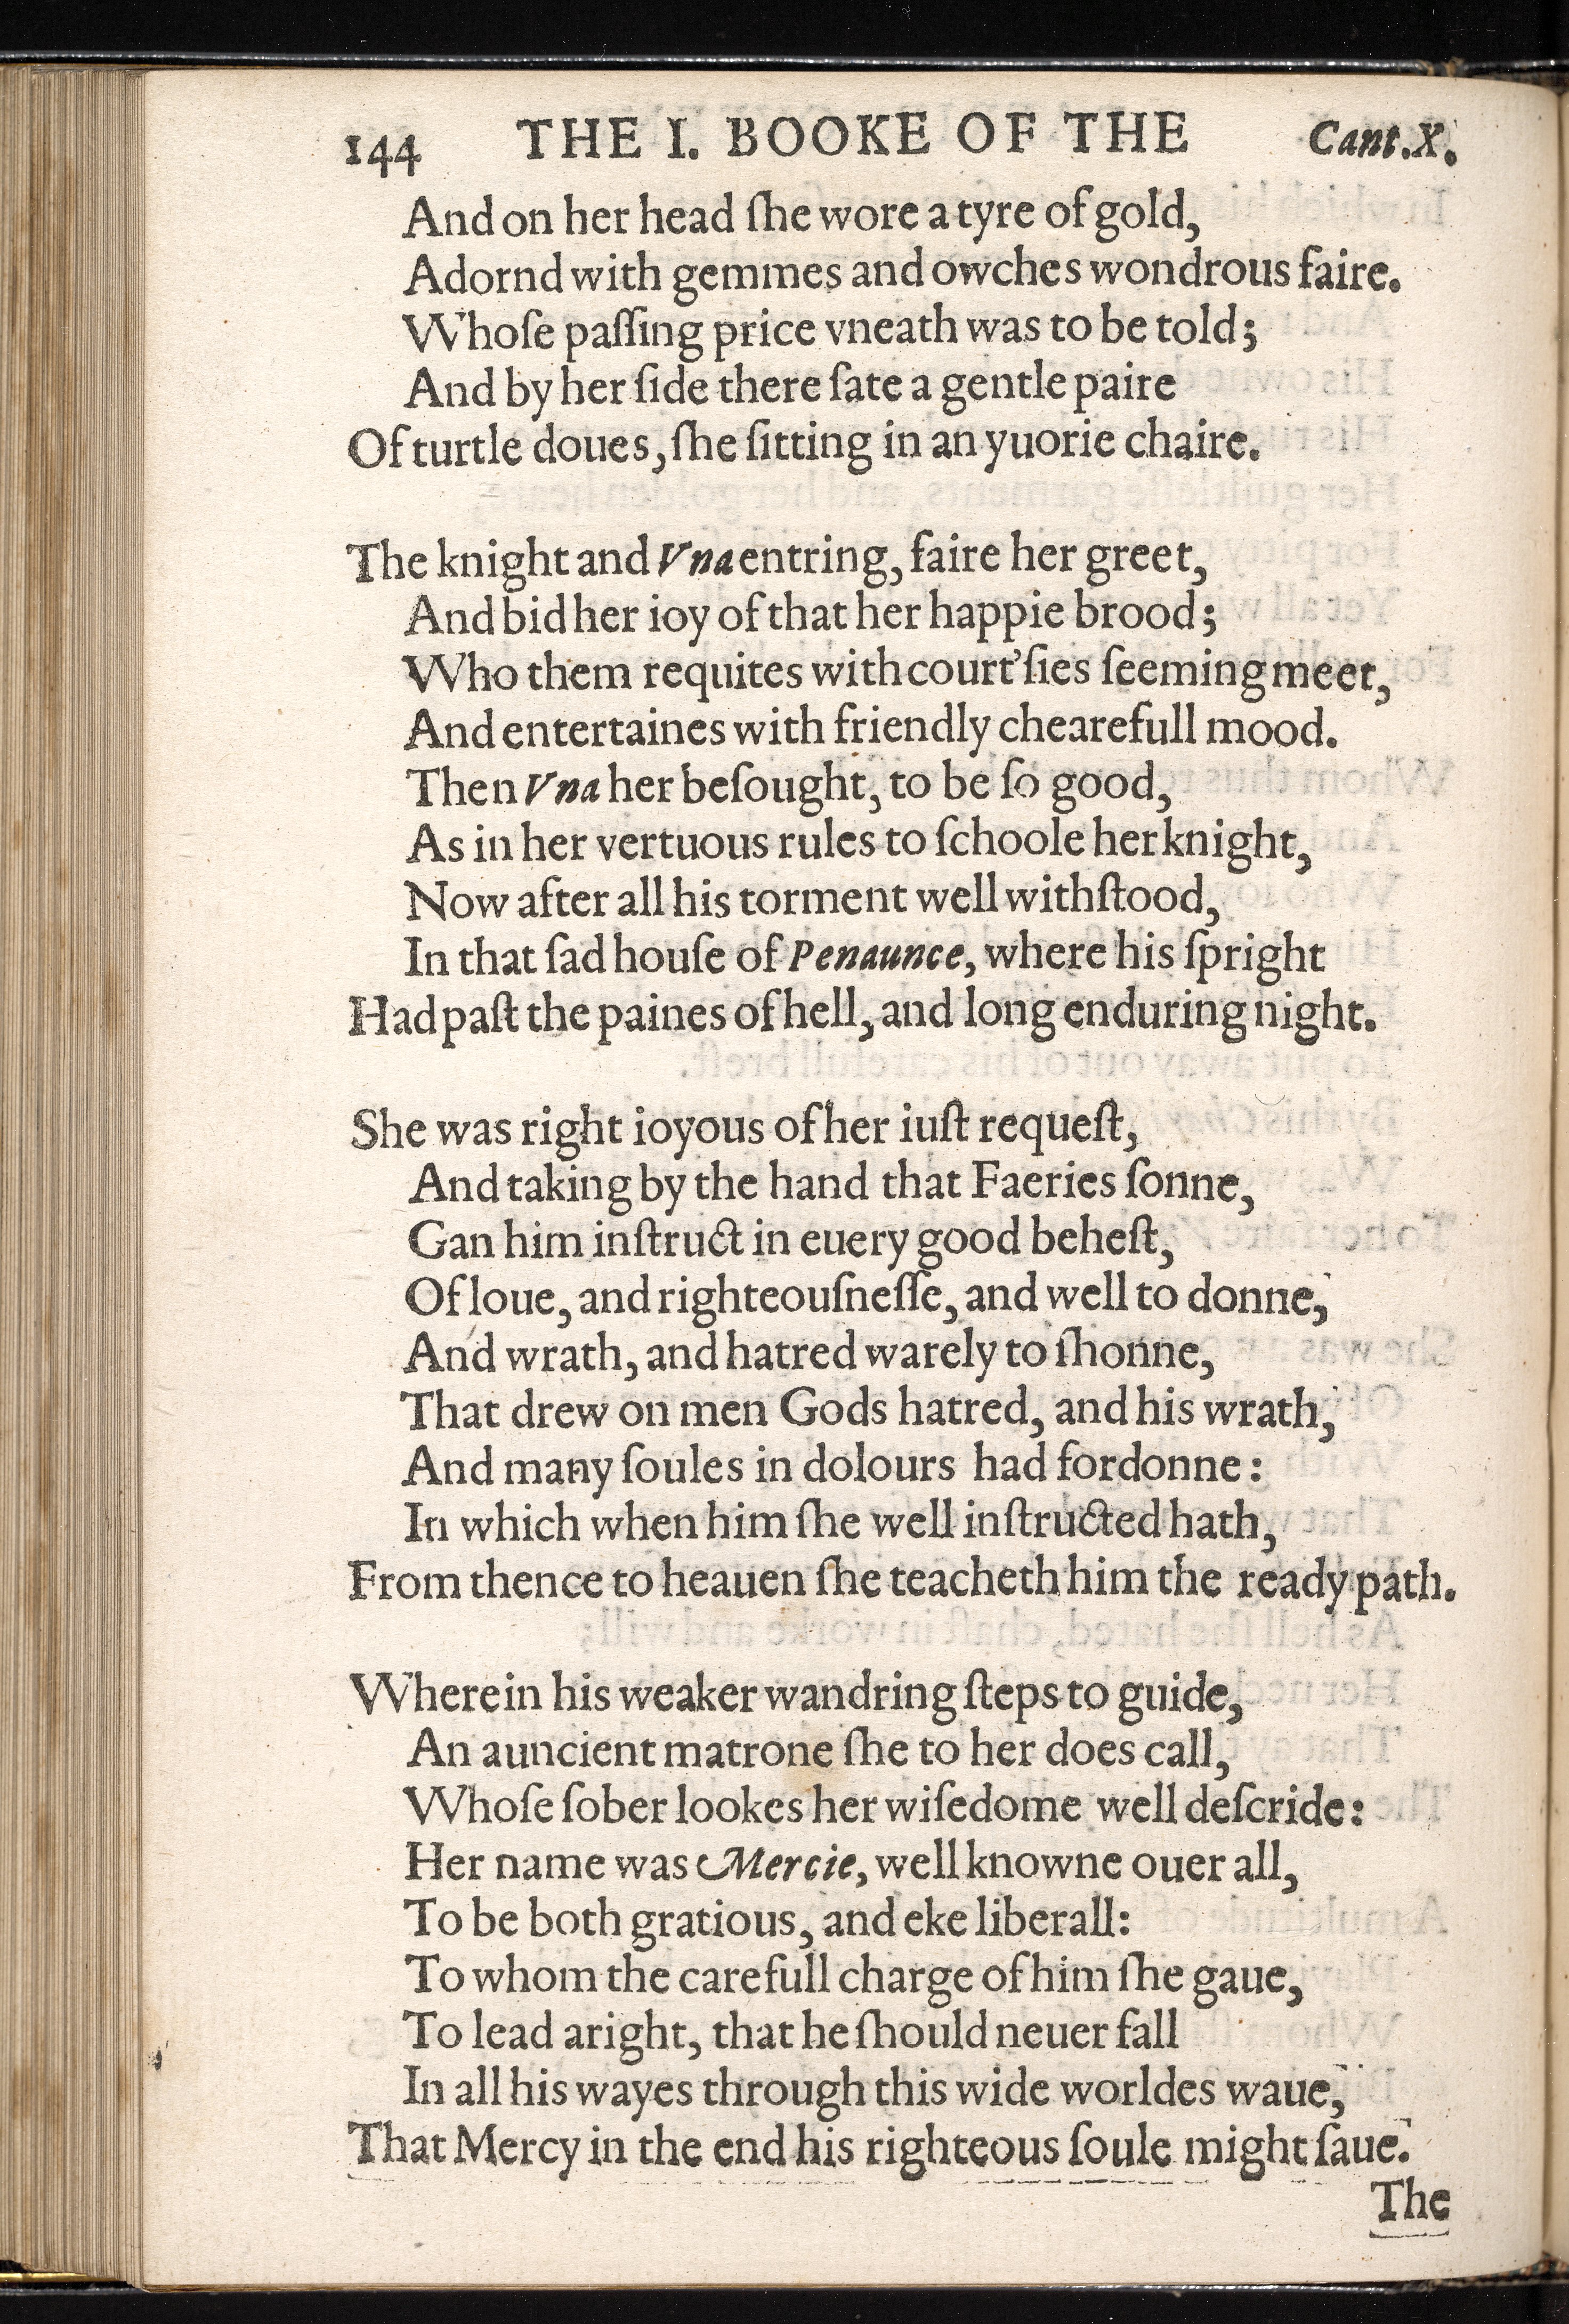 144 THE I. BOOKE OF THE Cant.X.
And on her head ſhe wore a tyre of gold,
Adornd with gemmes and owches wondrous faire.
Whoſe paſſing price vneath was to be told;
And by her ſide there ſate a gentle paire
Of turtle doues, ſhe ſitting in an yuorie chaire.
The knight and Vna entring, faire her greet,
And bid her ioy of that her happie brood;
Who them requites with court’ſies ſeeming meet,
And entertaines with friendly chearefull mood.
Then Vna her beſought, to be ſo good,
As in her vertuous rules to ſchoole her knight,
Now after all his torment well withſtood,
In that ſad houſe of Penaunce, where his ſpright
Had paſt the paines of hell, and long enduring night.
She was right ioyous of her iuſt requeſt,
And taking by the hand that Faeries ſonne,
Gan him inſtruct in euery good beheſt,
Of loue, and righteouſneſſe, and well to donne,
And wrath, and hatred warely to ſhonne,
That drew on men Gods hatred, and his wrath,
And many ſoules in dolours had fordonne:
In which when him ſhe well inſtructed hath,
From thence to heauen ſhe teacheth him the ready path.
Wherein his weaker wandring ſteps to guide,
An auncient matrone ſhe to her does call,
Whoſe ſober lookes her wiſedome well deſcride:
Her name was Mercie, well knowne ouer all,
To be both gratious, and eke liberall:
To whom the carefull charge of him ſhe gaue,
To lead aright, that he ſhould neuer fall
In all his wayes through this wide worldes waue,
That Mercy in the end his righteous ſoule might ſaue.
The